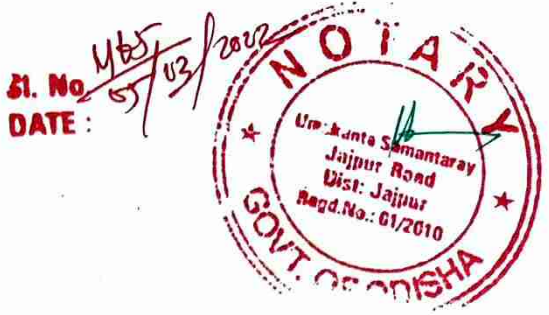 Sl. No
DATE :
05/03/2022
NOTARY
Samantaray
Jajpur Road
Dist: Jajpur
Regd.No.: 01/2010
GOVT. OF ODISHA